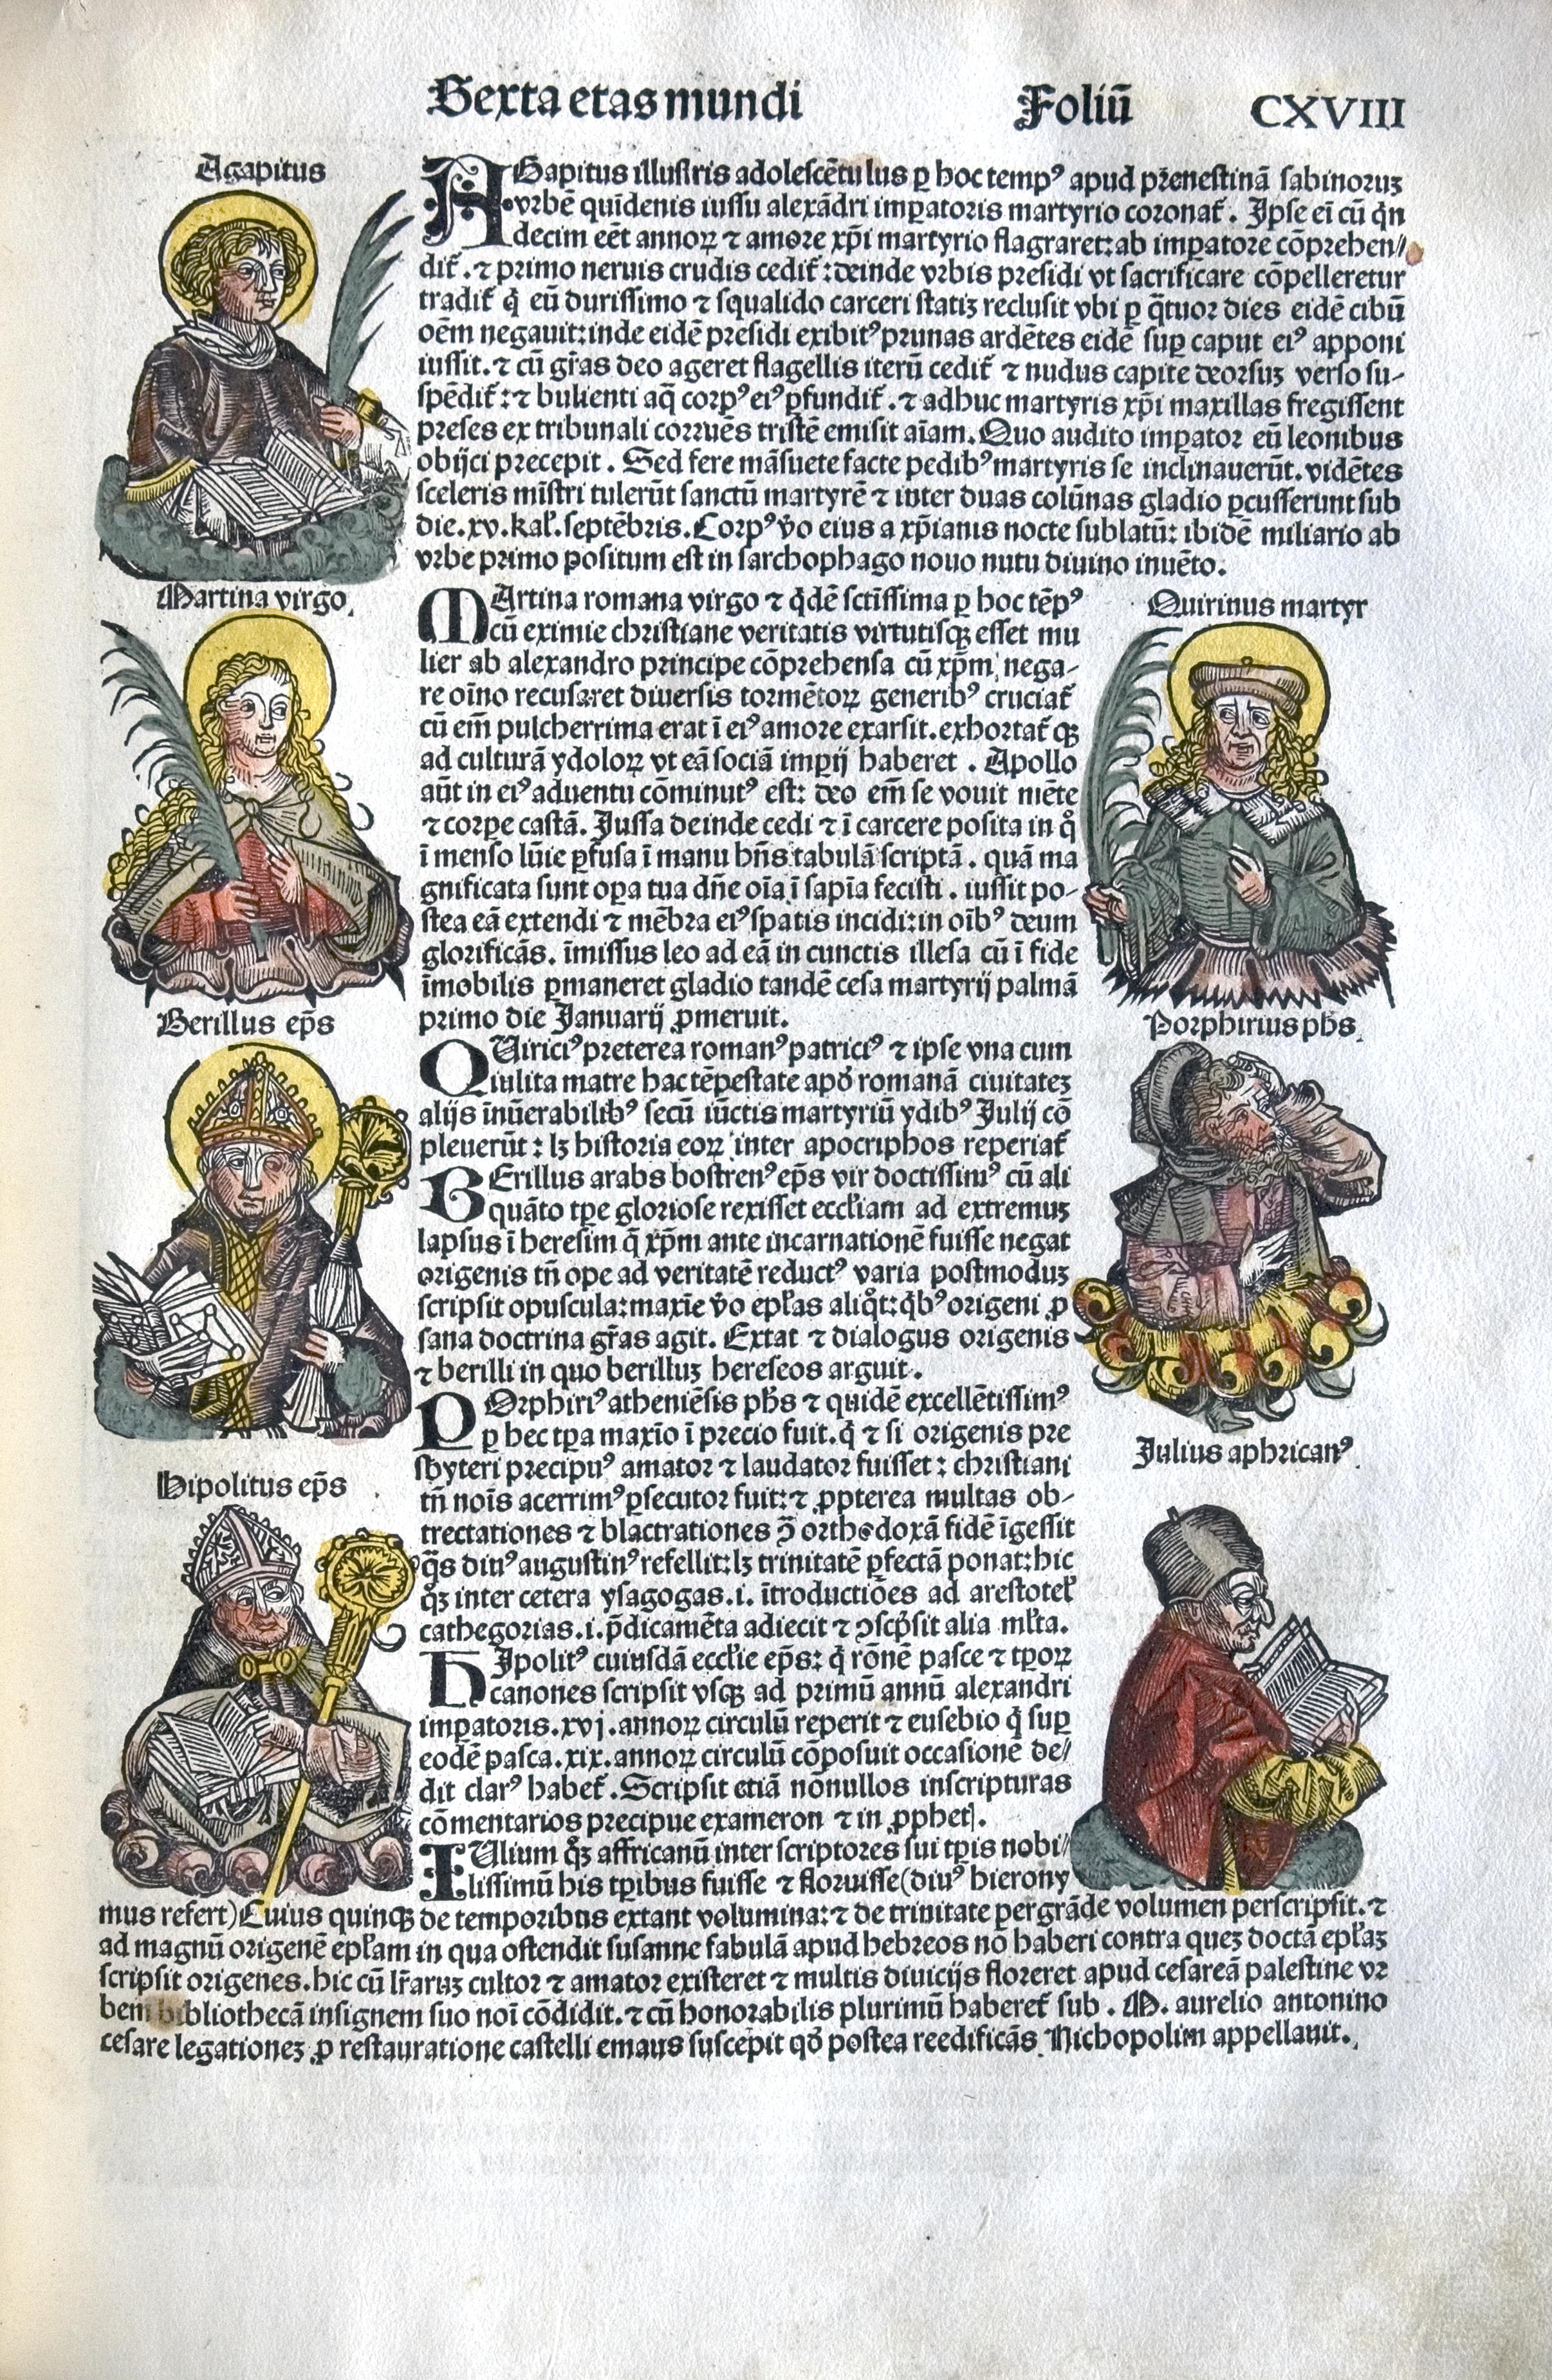 Sexta etas mundi Foliū CXVIII
Agapitus
AGapitus illustris adolescētulus ꝑ hoc tempꝰ apud prenestinā sabinoruꝫ
vrbē quīdenis iussu alexādri imꝑatoris martyrio coronat᷑. Ipse ei cū qͥn
decim eēt annoꝝ ⁊ amore xp̄i martyrio flagraret: ab imꝑatore cōprehen
dit᷑. ⁊ primo neruis crudis cedit᷑: deinde vrbis presidi vt sacrificare cōpelleretur
tradit᷑ qͥ eū durissimo ⁊ squalido carceri statiꝫ reclusit vbi ꝑ qͣtuor dies eidē cibū
oēm negauit: inde eidē presidi exibitꝰ prunas ardētes eidē suꝑ caput eiꝰ apponi
iussit. ⁊ cū gr̄as deo ageret flagellis iterū cedit᷑ ⁊ nudus capite deorsuꝫ verso su-
spēdit᷑: ⁊ bulienti aqͣ corpꝰ eiꝰ ꝑfundit᷑. ⁊ adhuc martyris xp̄i maxillas fregissent
preses ex tribunali corruēs tristē emisit aīam. Quo audito imꝑator eū leonibus
obijci precepit. Sed fere māsuete facte pedibꝰ martyris se inclinauerūt. vidētes
sceleris mīstri tulerūt sanctū martyrē ⁊ inter duas colūnas gladio ꝑcusserunt sub
die. xv. kal̄. septēbris. Corpꝰ v̄o eius a xp̄ianis nocte sublatū: ibidē miliario ab
vrbe primo positum est in sarchophago nouo nutu diuino inuēto.
Martina virgo
MArtina romana virgo ⁊ qͥdē sctīssima ꝑ hoc tēpꝰ
cū eximie christiane veritatis virtutisqꝫ esset mu
lier ab alexandro principe cōprehensa cū xp̄m nega-
re oīno recusaret diuersis tormētoꝝ generibꝰ cruciat᷑
cū em̄ pulcherrima erat ī eiꝰ amore exarsit. exhortat᷑ qꝫ
ad culturā ydoloꝝ vt eā sociā imꝑij haberet. Apollo
aūt in eiꝰ aduentu cōminutꝰ est: deo em̄ se vouit mēte
⁊ corpe castā. Jussa deinde cedi ⁊ ī carcere posita in qͦ
ī menso lūie ꝑfusa ī manu hn̄s tabulā scriptā. quā ma
gnificata sunt oꝑa tua dn̄e oīa ī sapīa fecisti. iussit po-
stea eā extendi ⁊ mēbra eiꝰ spatis incidi: in oībꝰ deum
glorificās. īmissus leo ad eā in cunctis illesa cū ī fide
īmobilis ꝑmaneret gladio tandē cesa martyrij palmā
primo die Januarij ꝓmeruit.
Quirinus martyr
Berillus ep̄s
QUiriciꝰ preterea romanꝰ patriciꝰ ⁊ ipse vna cum
iulita matre hac tēpestate apd̄ romanā ciuitateꝫ
alijs īnūerabilibꝰ secū iūctis martyriū ydibꝰ Julij cō
pleuerūt: lꝫ historia eoꝝ inter apocriphos reperiat᷑
BErillus arabs bostrenꝰ ep̄s vir doctissimꝰ cū ali
quāto tp̄e gloriose rexisset eccl̄iam ad extremuꝫ
lapsus ī heresim qͣ xp̄m ante incarnationē fuisse negat
origenis tn̄ ope ad veritatē reductꝰ varia postmoduꝫ
scripsit opuscula: maxīe v̄o epl̄as aliqͦt: qͥbꝰ origeni ꝓ
sana doctrina gr̄as agit. Extat ⁊ dialogus origenis
⁊ berilli in quo berilluꝫ hereseos arguit.
Porphirius ph̄s
POrphiriꝰ atheniēsis ph̄s ⁊ quidē excellētissimꝰ
ꝑ hec tp̄a maxīo ī precio fuit. qͥ ⁊ si origenis pre
sbyteri precipuꝰ amator ⁊ laudator fuisset: christiani
tn̄ noīs acerrimꝰ ꝑsecutor fuit: ⁊ ꝓpterea multas ob-
trectationes ⁊ blactrationes ꝯ̄ orthodoxā fidē īgessit
qͣs diuꝰ augustinꝰ refellit: lꝫ trinitatē ꝑfectā ponat: hic
qͦꝫ inter cetera ysagogas. i. ītroductiōes ad arestotel̄
cathegorias. i. p̄dicamēta adiecit ⁊ ꝯscpͥsit alia ml̄ta.
Hipolitus ep̄s
HIpolitꝰ cuiusdā eccl̄ie ep̄s: qͥ rōnē pasce ⁊ tp̄oꝝ
canones scripsit vsqꝫ ad primū annū alexandri
imꝑatoris. xvj. annoꝝ circulū reperit ⁊ eusebio qͥ suꝑ
eodē pasca. xix. annoꝝ circulū cōposuit occasionē de
dit clarꝰ habet᷑. Scripsit etiā nōnullos in scripturas
cōmentarios precipue exameron ⁊ in ꝓphet.
Julius aphricanꝰ
IUlium qͦꝫ affricanū inter scriptores sui tp̄is nobi
lissimū his tp̄ibus fuisse ⁊ floruisse (diuꝰ hierony
mus refert) Cuius quinqꝫ de temporibus extant volumina: ⁊ de trinitate pergrāde volumen perscripsit. ⁊
ad magnū origenē epl̄am in qua ostendit susanne fabulā apud hebreos nō haberi contra queꝫ doctā epl̄aꝫ
scripsit origenes. hic cū lr̄aruꝫ cultor ⁊ amator existeret ⁊ multis diuicijs floreret apud cesareā palestine vr
bem bibliothecā insignem suo noī cōdidit. ⁊ cū honorabilis plurimū haberet᷑ sub. M. aurelio antonino
cesare legationeꝫ ꝓ restauratione castelli emaus suscepit qd̄ postea reedificās Nichopolim appellauit.